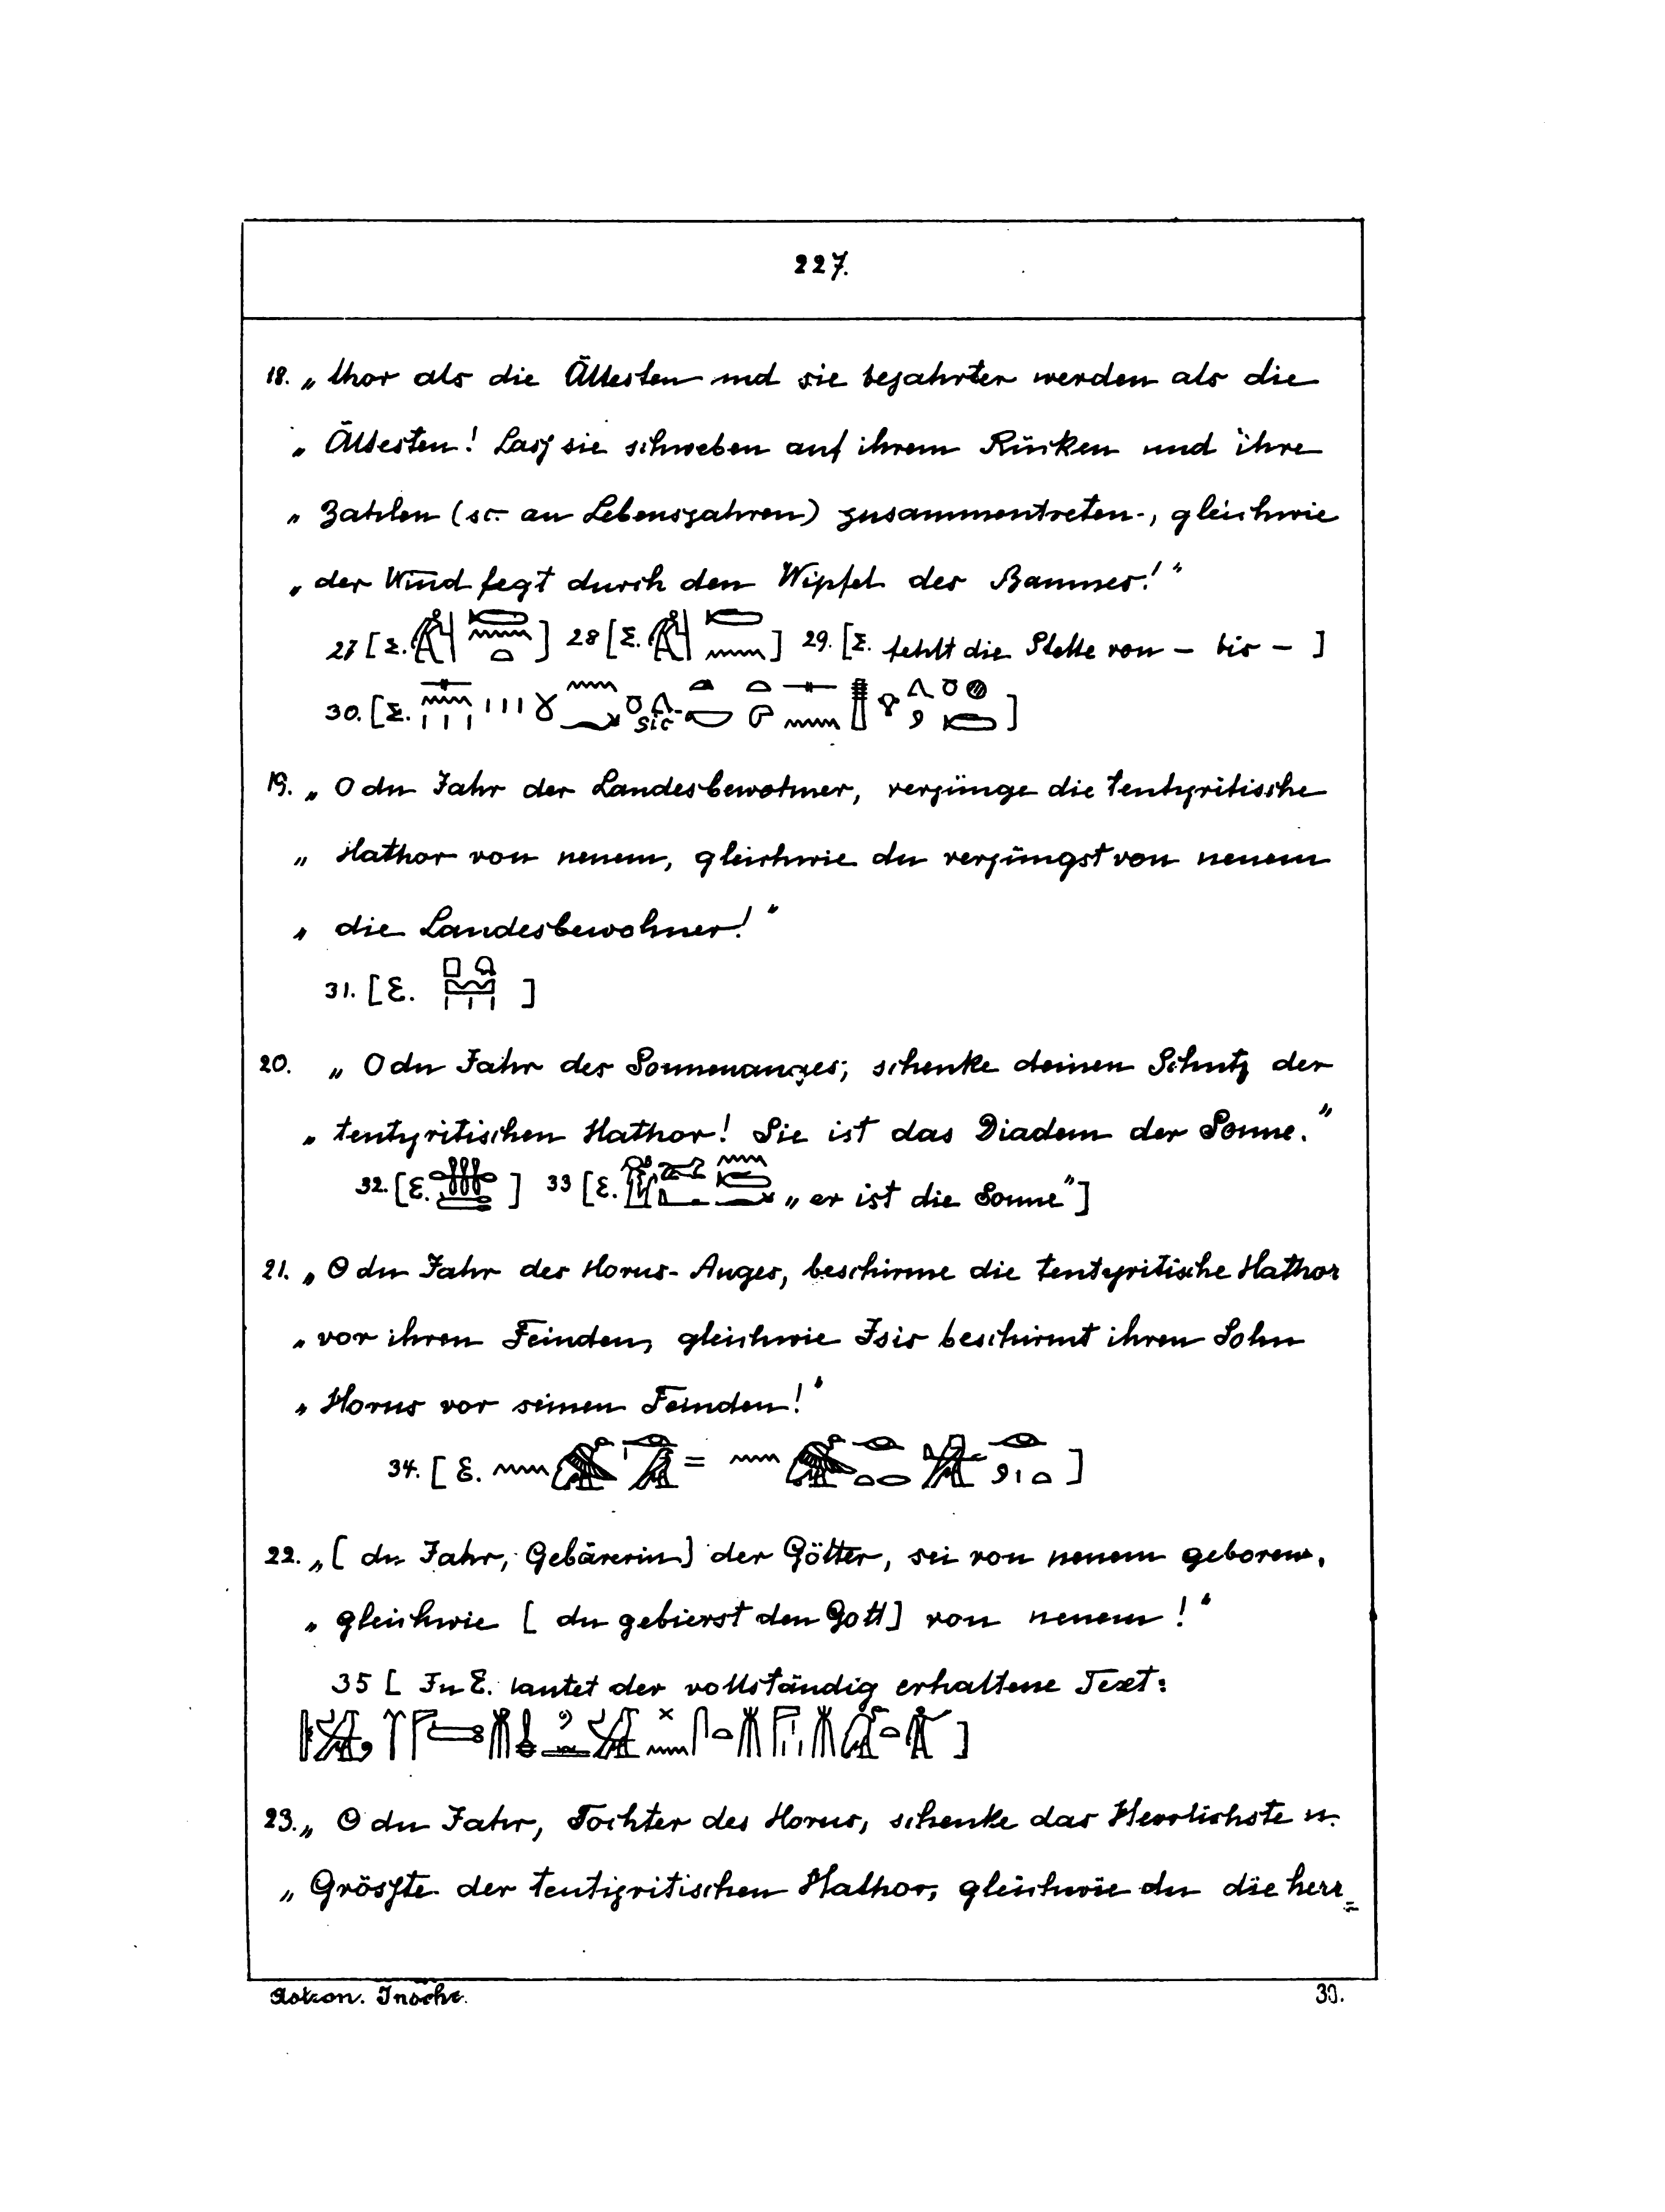 227.
18. „ thor als die Ältesten und sie bejahrter werden als die
„ Ältesten! Lass sie schweben auf ihrem Rücken und ihre
„ Zahlen (sc. an Lebensjahren) zusammentreten, gleichwie
„ der Wind fegt durch den Wipfel des Baumes!“
27 [E. ] 28 [E. ] 29. [E. fehlt die Stelle von – bis – ]
30. [E. sic ]
19. „ O du Jahr der Landesbewohner, verjünge die tentyritische
„ Hathor von neuem, gleichwie du verjüngst von neuem
„ die Landesbewohner!“
31. [E. ]
20. „ O du Jahr des Sonnenauges, schenke deinen Schutz der
„ tentyritischen Hathor! Sie ist das Diadem der Sonne.“
32. [E. ] 33 [E. „ er ist die Sonne“]
21. „ O du Jahr des Horus-Auges, beschirme die tentyritische Hathor
„ vor ihren Feinden, gleichwie Isis beschirmt ihren Sohn
„ Horus vor seinen Feinden!“
34. [E. = ]
22. „ [ du Jahr, Gebärerin] der Götter, sei von neuem geboren,
„ gleichwie [ du gebierst den Gott] von neuem!“
35 [ In E. lautet der vollständig erhaltene Text:
]
23. „ O du Jahr, Tochter des Horus, schenke das Herrlichste u.
„ Grösste der tentyritischen Hathor, gleichwie du die herr=
Astron. Inschr. 30.